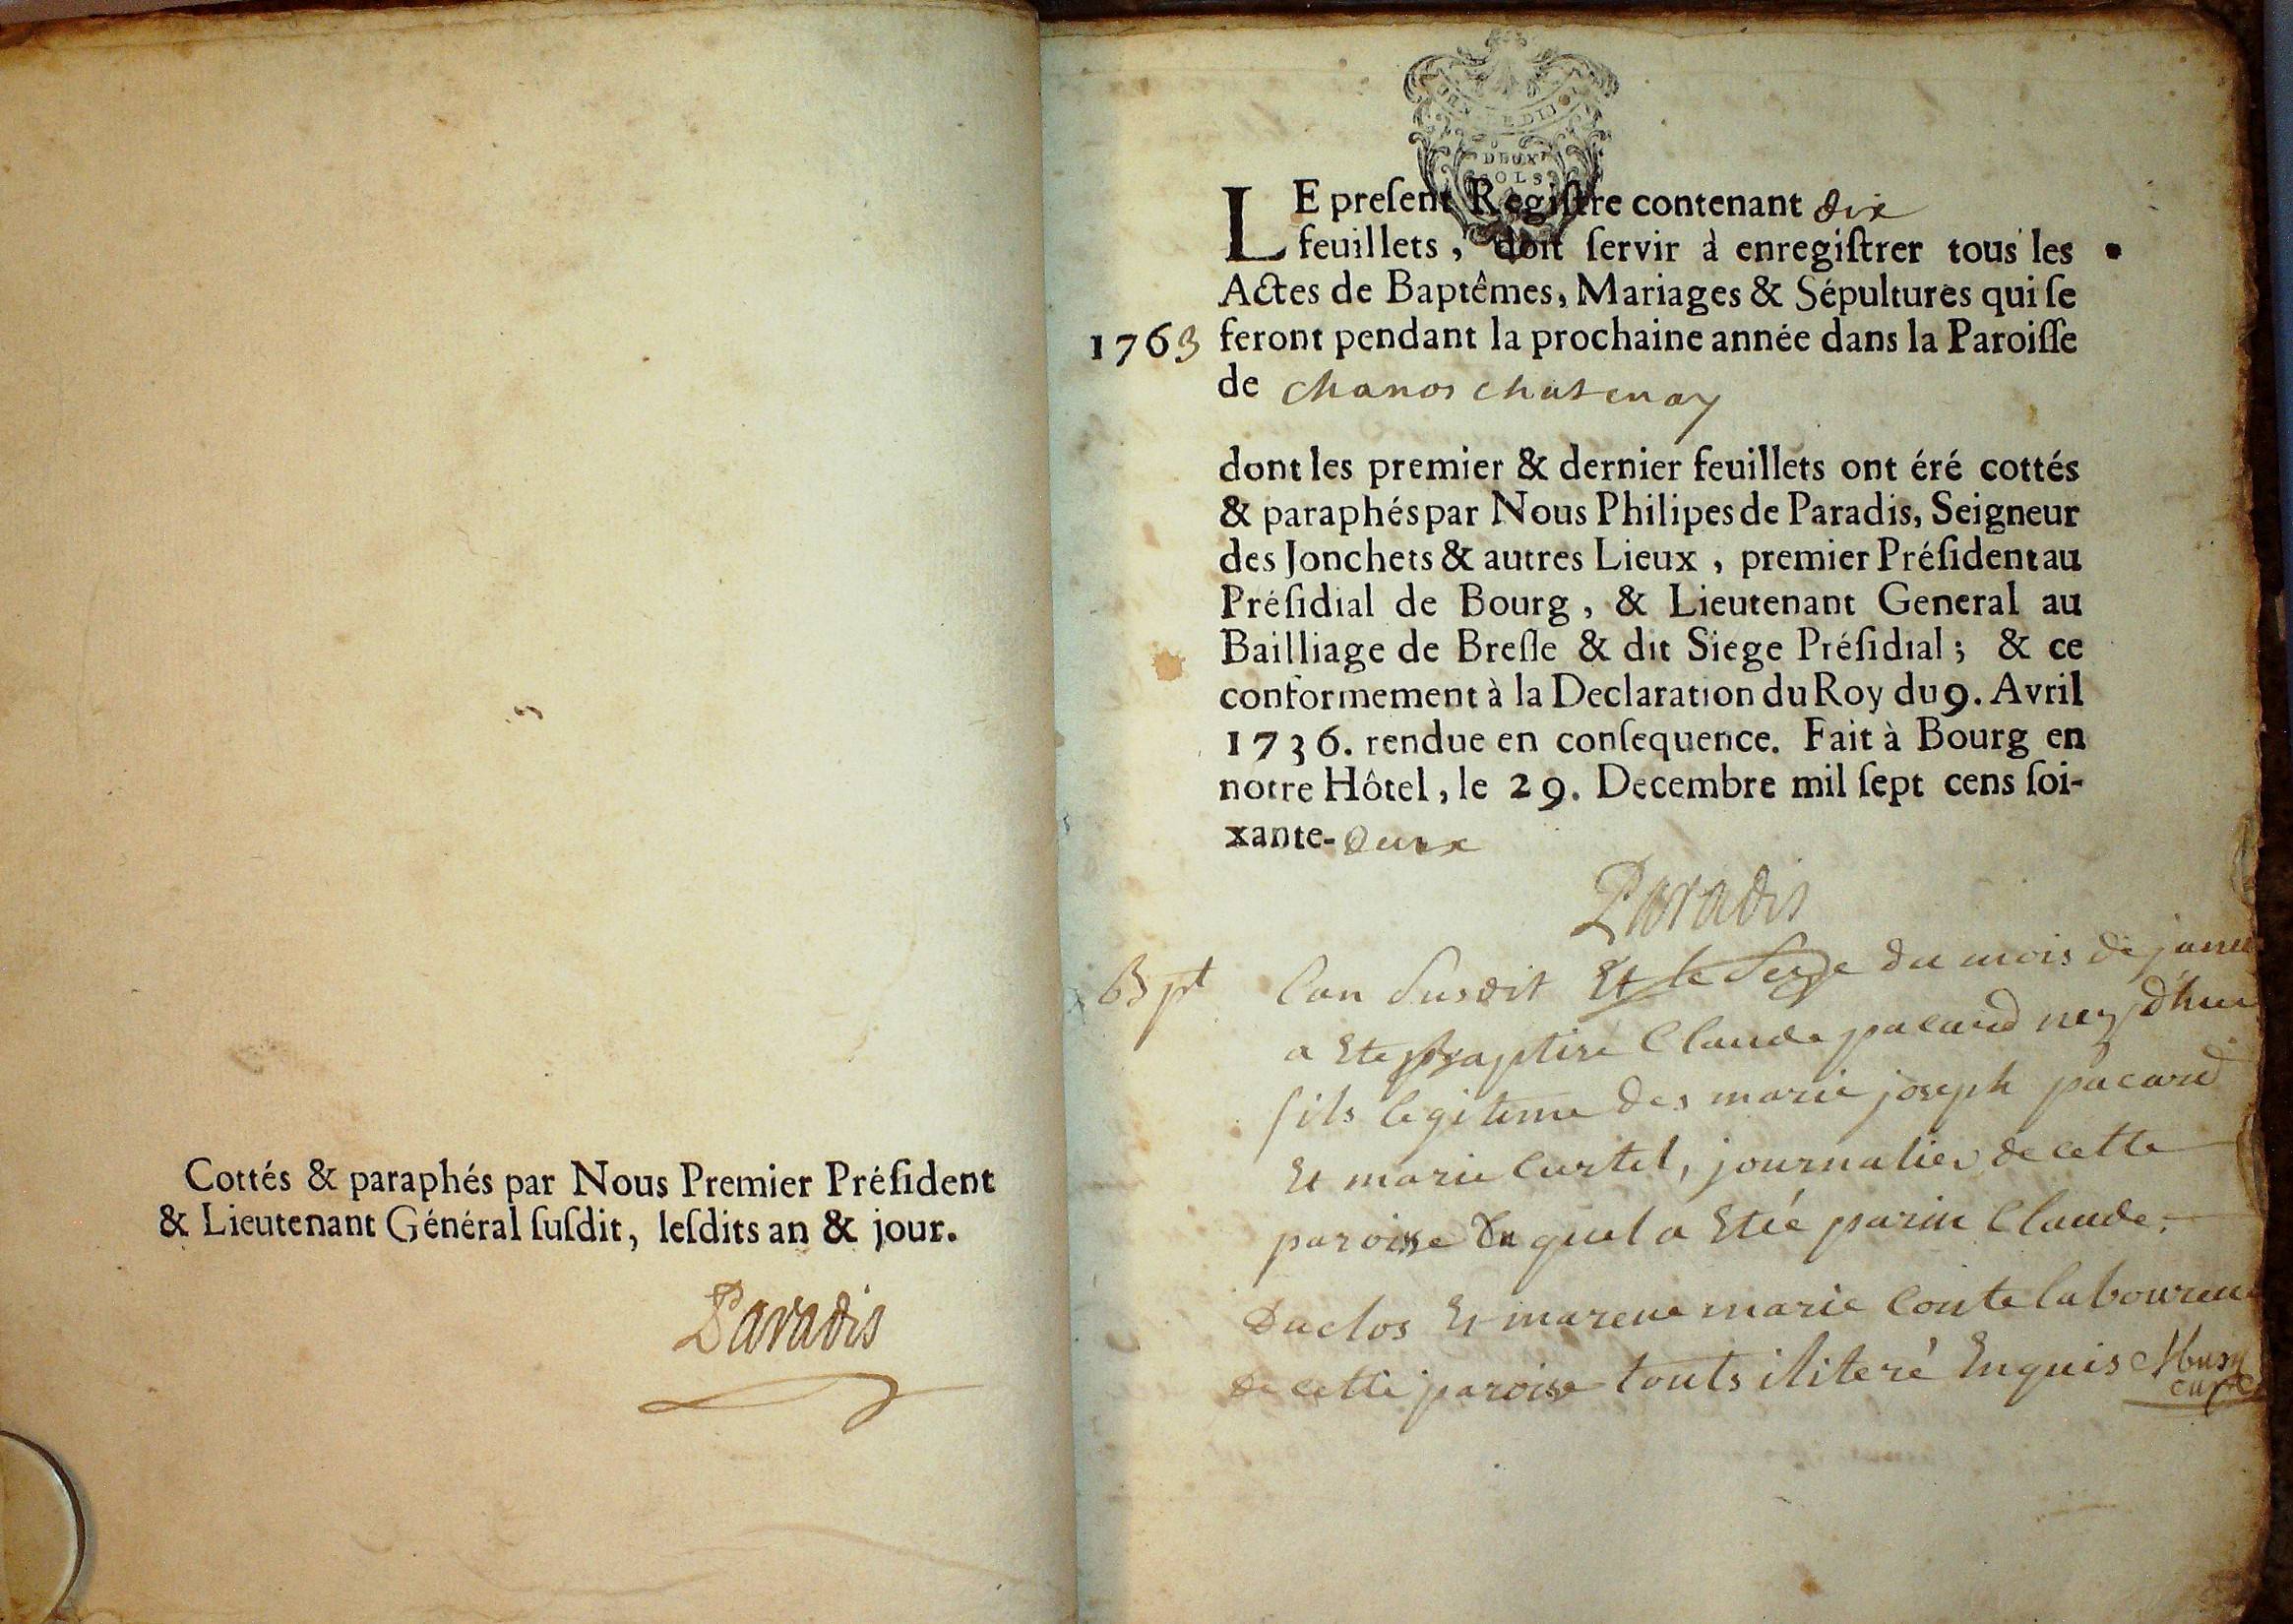 Cottés & paraphés par Nous Premier Préſident
& Lieutenant Général ſuſdit, leſdits an & jour.
Paradis
DEUX
SOLS
LE preſent Regiſtre contenant dix
feuillets, doit ſervir à enregiſtrer tous les
Actes de Baptêmes, Mariages & Sépultures qui ſe
1763 feront pendant la prochaine année dans la Paroiſſe
de Chanos Chatenay
dont les premier & dernier feuillets ont éré cottés
& paraphés par Nous Philipes de Paradis, Seigneur
des Jonchets & autres Lieux, premier Préſident au
Préſidial de Bourg, & Lieutenant General au
Bailliage de Breſſe & dit Siege Préſidial; & ce
conformement à la Declaration du Roy du 9. Avril
1736. rendue en conſequence. Fait à Bourg en
notre Hôtel, le 29. Decembre mil ſept cens ſoi-
xante-deux
Paradis
Bpt l'an susdit Et le seze du mois de
a Ete Baptisé Claude pacard ney
fils legitime des marie joseph pacard
Et marie Curtet, journalier de cette
paroisse Du quel a Etée parin Claude
Duclos Et marene marie Conte
de cette paroise touts iliteré Enquis
curé